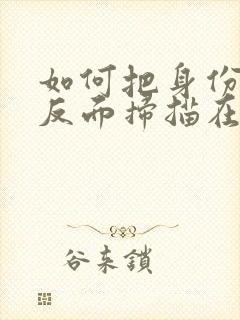 如何把身份
反而掃描在
谷来鎖